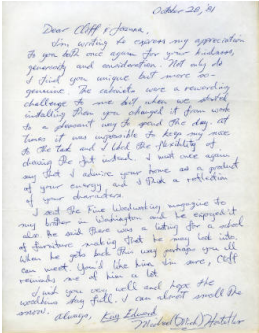 October 28, '81
Dear Cliff & Joanna,
I'm writing to express my appreciation
to you both once again for your kindness,
generosity and consideration. Not only do
I find you unique but more so-
genuine. The cabinets were a rewarding
challenge to me but when we started
installing them you changed it from work
to a pleasant way to spend the day. At
times it was impossible to keep my nose
to the task and I liked the flexibility of
chewing the fat instead. I must once again
say that I admire your home as a product
of your energy and I think a reflection
of your characters.
I sent the Fine Woodworking magazine to
my brother in Washington and he enjoyed it
also he said there was a listing for a school
of furniture making that he may look into
when he gets back this way perhaps you all
can meet. You'd like him I'm sure, Cliff
reminds me of him a lot.
I wish you very well and hope the
woodbin stay full. I can almost smell the
snow.
always, King Edward,
Michael (Mich)